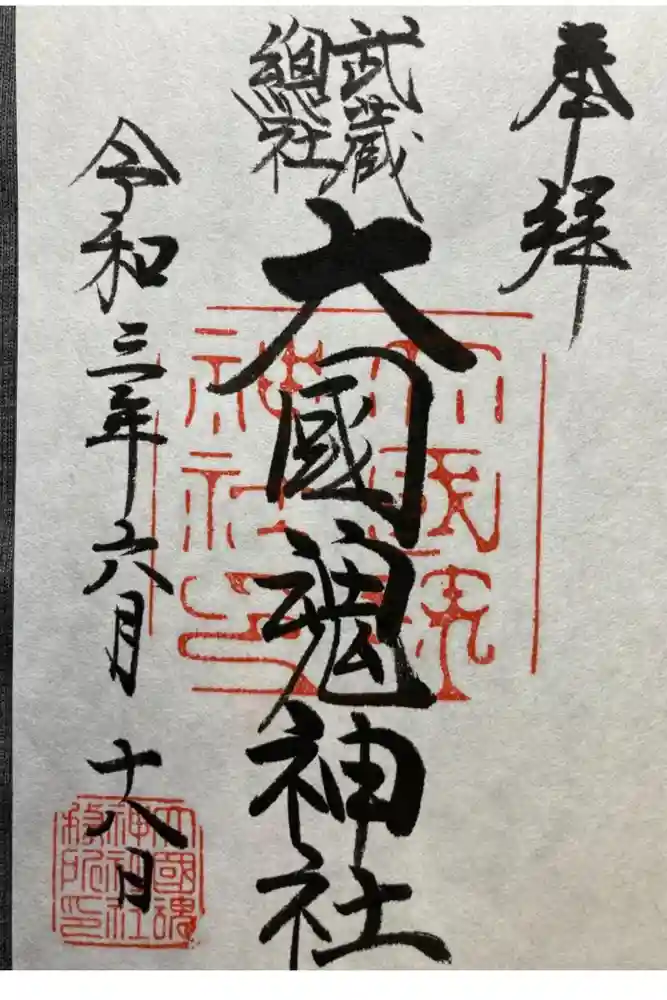 奉拝
武蔵
總社
大國魂神社
令和三年六月十八日
大國魂
神社印
大國魂
神社社
務所印